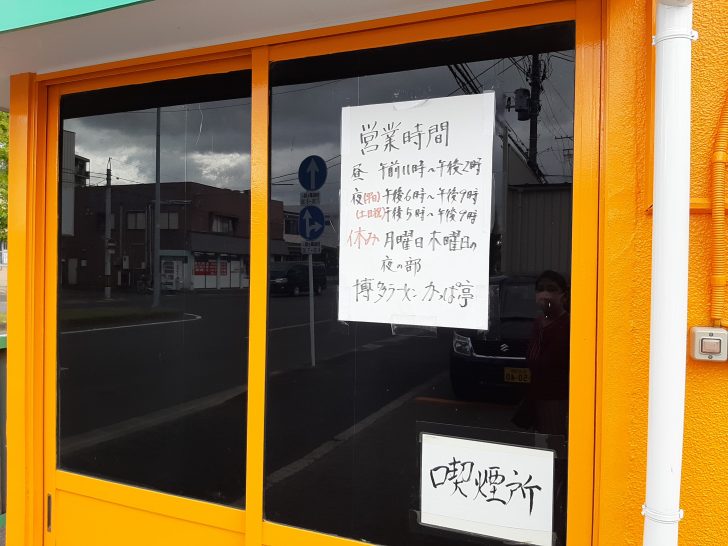 営業時間
昼 午前11時〜午後2時
夜(平日)午後6時〜午後9時
(土日祝)午後5時〜午後9時
休み 月曜日 木曜日の
夜の部
博多ラーメン かっぱ亭
喫煙所